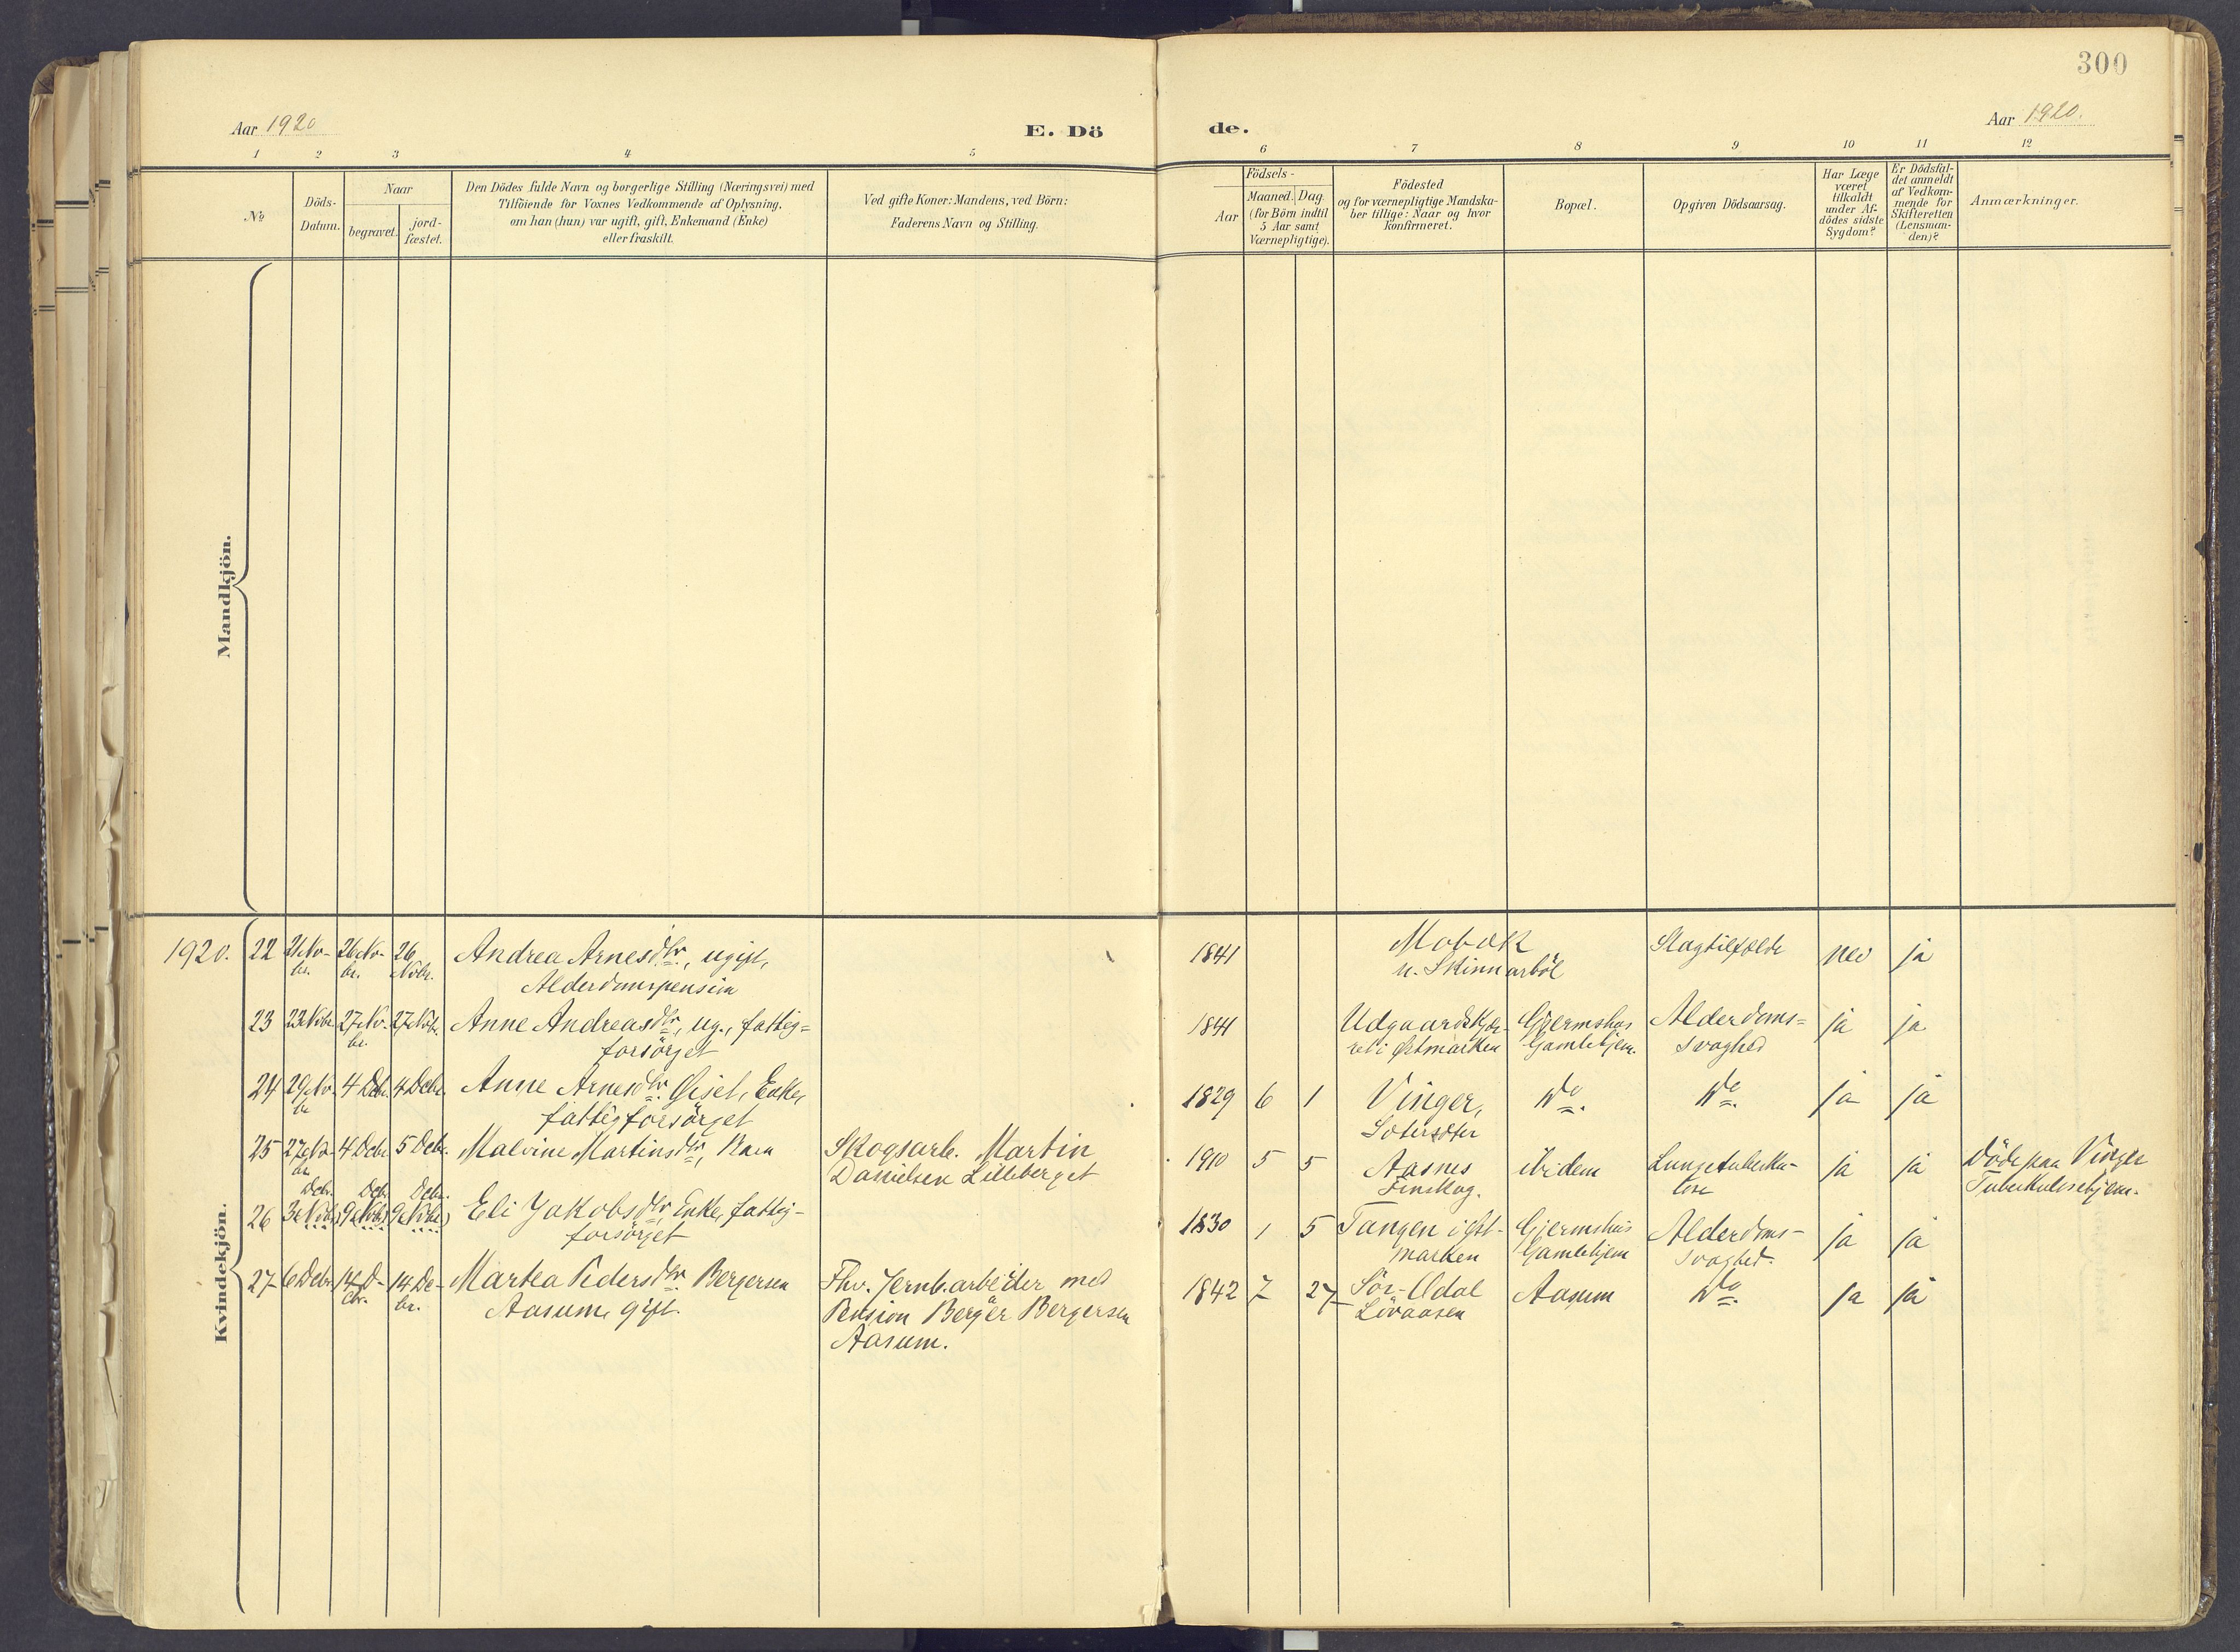 300
Aar 1920
E. Dö
de.
Aar 1920.
1 2 3 4 5 6 7 8 9 10 11 12
№
Döds-
Datum.
Naar
begravet.
jord-
fæstet.
Den Dödes fulde Navn og borgerlige Stilling (Næringsvei) med
Tilföiende for Voxnes Vedkommende af Oplysning,
om han (hun) var ugift, gift, Enkemand (Enke)
eller fraskilt.
Ved gifte Koner: Mandens, ved Börn:
Faderens Navn og Stilling.
Födsels-
Aar
Maaned. Dag.
(for Börn indtil
5 Aar samt
Værnepligtige).
Födested
og for værnepligtige Mandska-
ber tillige: Naar og hvor
konfirmeret.
Bopæl.
Opgiven Dödsaarsag.
Har Læge
været
tilkaldt
under Af-
dödes sidste
Sygdom?
Er Dödsfal-
det anmeldt
af Vedkom-
mende for
Skifteretten
(Lensman-
den)?
Anmærkninger.
Mandkjön.
Kvindekjön.
1920. 22 21 No-
br.
26 No-
br.
26
Nobr.
Andrea Arnesdtr., ugift,
Alderdomspension
1841
Mobæk
u. Skinnarböl
Slagtilfælde
nei ja
23 23 Nobr. 27 No-
br.
27 Nobr.
Anne Andreasdtr, ug., fattig=
forsörget
1841
Udgaardskjær-
ret i Østmarken
Gjermshus
Gamlehjem.
Alderdoms=
svaghed
ja ja
24 29 No-
br
4 Debr. 4 Debr.
Anne Arnesdtr. Gisel, Enke,
fattigforsörget
1829 6 1
Vinger,
Do. Do. ja ja
25 27 No-
br.
4 Debr. 5 Debr.
Malvine Martinsdtr, Barn
Skogsarb. Martin
Danielsen Lilleberget
1910 5 5
Aasnes
Finskog.
ibidem
Lungetuberku-
lose
ja ja
Döde paa Vinger
Tuberkulosehjem.
Debr. Debr. Debr.
26 3 (Nobr.) 9 (Nobr.) 9 (Nobr.)
Eli Jakobsdtr, Enke, fattig-
forsörget
1830 1 5
Tangen i Øst-
marken
Gjermshus
Gamlehjem
Alderdoms-
svaghed.
ja ja
27 6 Debr. 14 D-
ebr.
14 De-
br.
Martea Pedersdtr. Bergersen
Aasum, gift.
Fhv. Jernb.arbeider med
Pension Berger Bergersen
Aasum.
1842 7 27
Sör-Odal
Lövaasen
Aasum
Do. ja ja